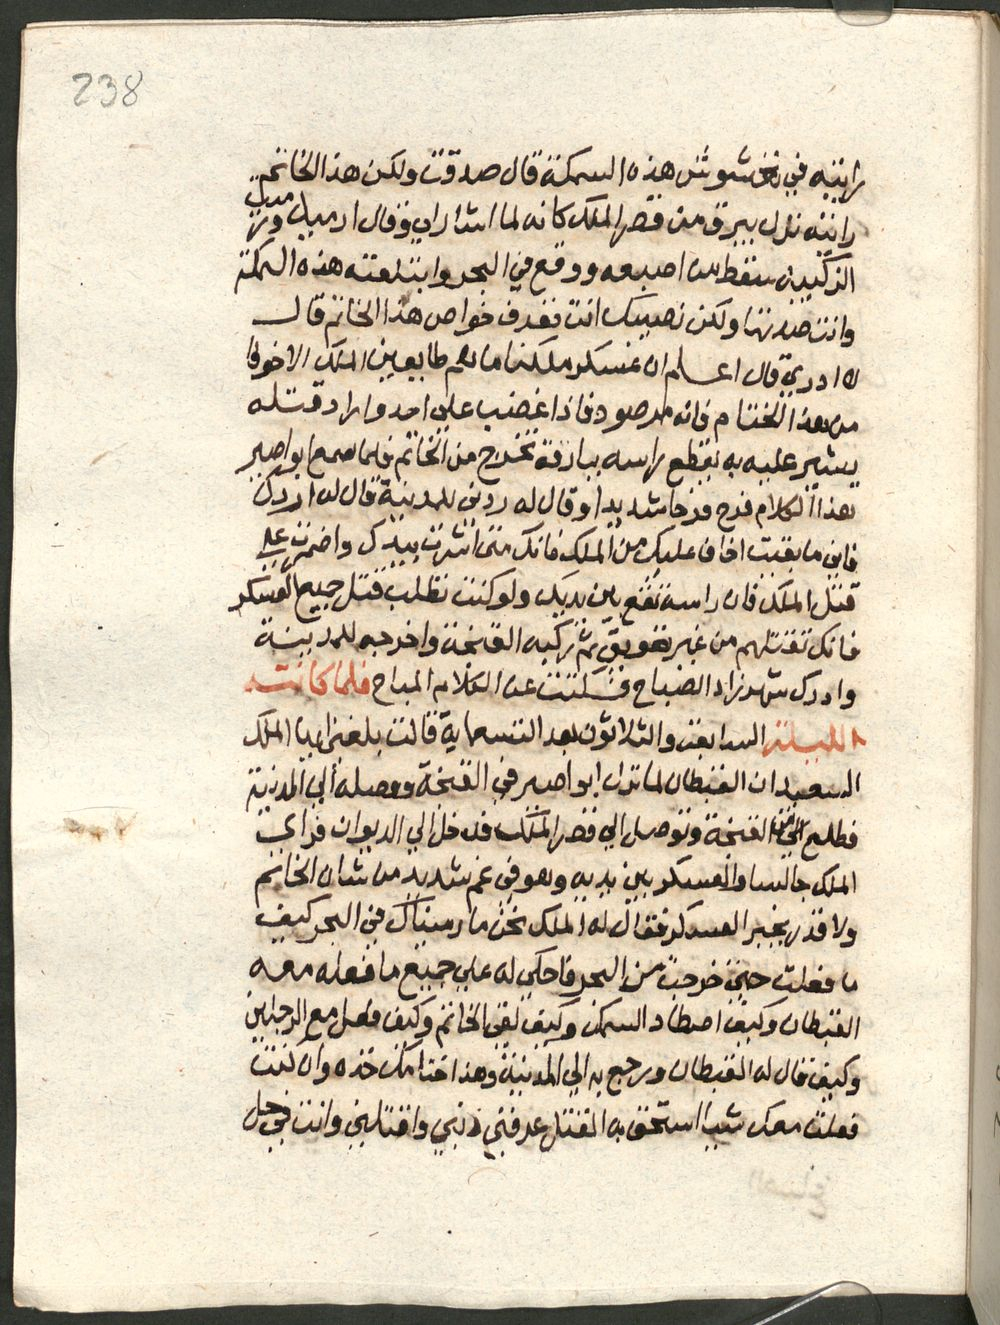 238
رايته في نخشوش هذه السمكة قال صدقت ولكن هذا الخاتم
رايته نزل ببرق من قصر الملك كانه لما اشار الي وقال ارميه ورميت
الزكيبة سقط من اصبعه ووقع في البحر وابتلعته هذه السمكة
وانت صدتها ولكن نصيبك انت تعرف خواص هذا الخاتم قال
لا ادري قال اعلم ان عسكر ملكنا ما هم طايعين الملك الا خوفا
من هذا الختام فانه مرصود فاذا غضب علي احد واراد قتله
يشير عليه به يقطع راسه ببارقة تخرج من الخاتم فلما سمع ابو صير
هذا الكلام فرح فرحا شديدا وقال له ردني للمدينة قال له اردك
فاني ما بقيت اخاف عليك من الملك فانك متي اشرت بيدك واضمرت علي
قتل الملك فان راسه تقع بين يديك ولو كنت تطلب قتل جميع العسكر
فانك تقتلهم من غير تعويق ثم ركبه القنجة واخرجه للمدينة
وادرك شهرزاد الصباح فسكتت عن الكلام المباح فلما كانت
الليلة السابعة والثلاثون بعد التسعماية قالت بلغني ايها الملك
السعيد ان القبطان لما نزل ابو صير في القنجة ووصله الي المدينة
فطلع من القنجة وتوصل الي قصر الملك فدخل الي الديوان فراي
الملك جالسا والعسكر بين يديه وهو في غم شديد من شان الخاتم
ولا قدر يخبر العسكر فقال له الملك نحن ما رميناك في البحر كيف
ما فعلت حتي خرجت من البحر فاحكي له علي جميع ما فعله معه
القبطان وكيف اصطاد السمك وكيف لقي الخاتم وكيف فعل مع الرجلين
وكيف قال له القبطان ورجع به الي المدينة وهذا ختامك خذه وان كنت
فعلت معك شيا استحق به القتل عرفني ذنبي واقتلني وانت في حل